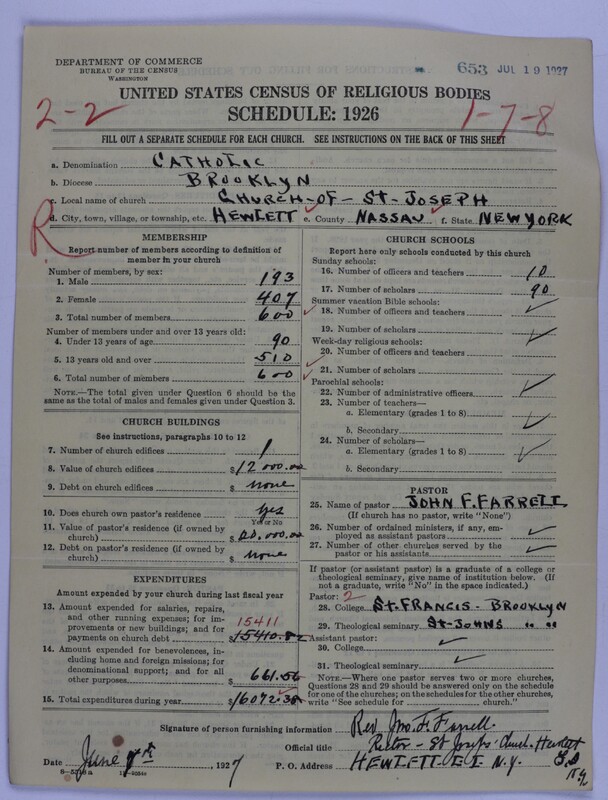 DEPARTMENT OF COMMERCE
BUREAU OF THE CENSUS
WASHINGTON
653 JUL 19 1927
UNITED STATES CENSUS OF RELIGIOUS BODIES
SCHEDULE: 1926
2-2
1-7-8
FILL OUT A SEPARATE SCHEDULE FOR EACH CHURCH. SEE INSTRUCTIONS ON THE BACK OF THIS SHEET
a. Denomination CATHOLIC
b. Diocese BROOKLYN
c. Local name of church CHURCH-OF-ST-JOSEPH
d. City, town, village, or township, etc. HEWLETT e. County NASSAU f. State NEW YORK
R
MEMBERSHIP
Report number of members according to definition of
member in your church
Number of members, by sex:
1. Male 193
2. Female 407
3. Total number of members 600
Number of members under and over 13 years old:
4. Under 13 years of age 90
5. 13 years old and over 510
6. Total number of members 600
NOTE.—The total given under Question 6 should be
the same as the total of males and females given under Question 3.
CHURCH BUILDINGS
See instructions, paragraphs 10 to 12
7. Number of church edifices 1
8. Value of church edifices $12000.00
9. Debt on church edifices $ none
10. Does church own pastor's residence yes
Yes or No
11. Value of pastor's residence (if owned by
church)
12. Debt on pastor's residence (if owned by
church) $ none
EXPENDITURES
Amount expended by your church during last fiscal year
13. Amount expended for salaries, repairs,
and other running expenses; for im-
provements or new buildings; and for
payments on church debt $15410.82
15411
14. Amount expended for benevolences, in-
cluding home and foreign missions; for
denominational support; and for all
other purposes $ 661.56
15. Total expenditures during year $16072.38
CHURCH SCHOOLS
Report here only schools conducted by this church
Sunday schools:
16. Number of officers and teachers 10
17. Number of scholars 90
Summer vacation Bible schools:
18. Number of officers and teachers
19. Number of scholars
Week-day religious schools:
20. Number of officers and teachers
21. Number of scholars
Parochial schools:
22. Number of administrative officers
23. Number of teachers—
a. Elementary (grades 1 to 8)
b. Secondary
24. Number of scholars—
a. Elementary (grades 1 to 8)
b. Secondary
PASTOR
25. Name of pastor JOHN F. FARRELL
(If church has no pastor, write "None")
26. Number of ordained ministers, if any, em-
ployed as assistant pastors
27. Number of other churches served by the
pastor or his assistants
If pastor (or assistant pastor) is a graduate of a college or
theological seminary, give name of institution below. (If
not a graduate, write "No" in the space indicated.)
Pastor: 2
28. College ST. FRANCIS - BROOKLYN
29. Theological seminary ST-JOHNS " "
Assistant pastor:
30. College
31. Theological seminary
NOTE.—Where one pastor serves two or more churches,
Questions 28 and 29 should be answered only on the schedule
for one of the churches; on the schedules for the other churches,
write "See schedule for church."
Signature of person furnishing information Rev Jno. F. Farrell
Official title Rector - St Josephs Church. Hewlett
Date June 7th, 1927 P. O. Address HEWLETT-L I. N.Y.
N.Y.